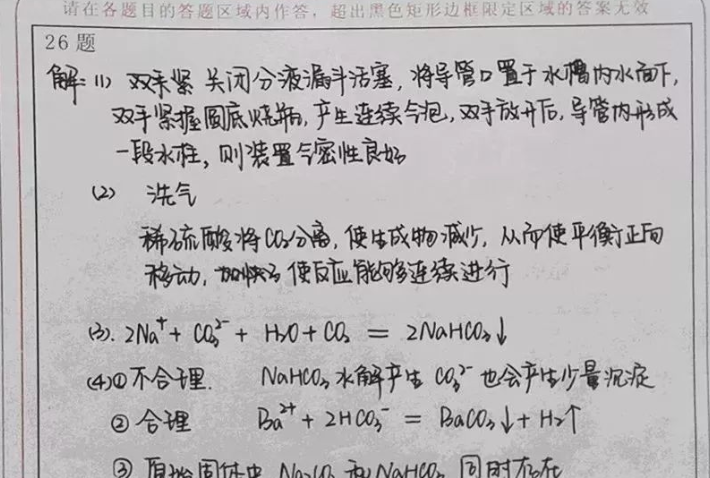 请在各题目的答题区域内作答，超出黑色矩形边框限定区域的答案无效
26题
解：(1) 关闭分液漏斗活塞，将导管口置于水槽内水面下，
双手紧握圆底烧瓶，产生连续气泡，双手放开后，导管内形成
一段水柱，则装置气密性良好
(2) 洗气
稀硫酸将CO₂分离，使生成物减少，从而使平衡正向
移动，使反应能够连续进行
(3). 2Na⁺ + CO₃²⁻ + H₂O + CO₂ = 2NaHCO₃↓
(4)①不合理. NaHCO₃水解产生 CO₃²⁻ 也会产生少量沉淀
②合理 Ba²⁺ + 2HCO₃⁻ = BaCO₃↓ + H₂↑
③原始固体中 Na₂CO₃ 和 NaHCO₃ 同时存在